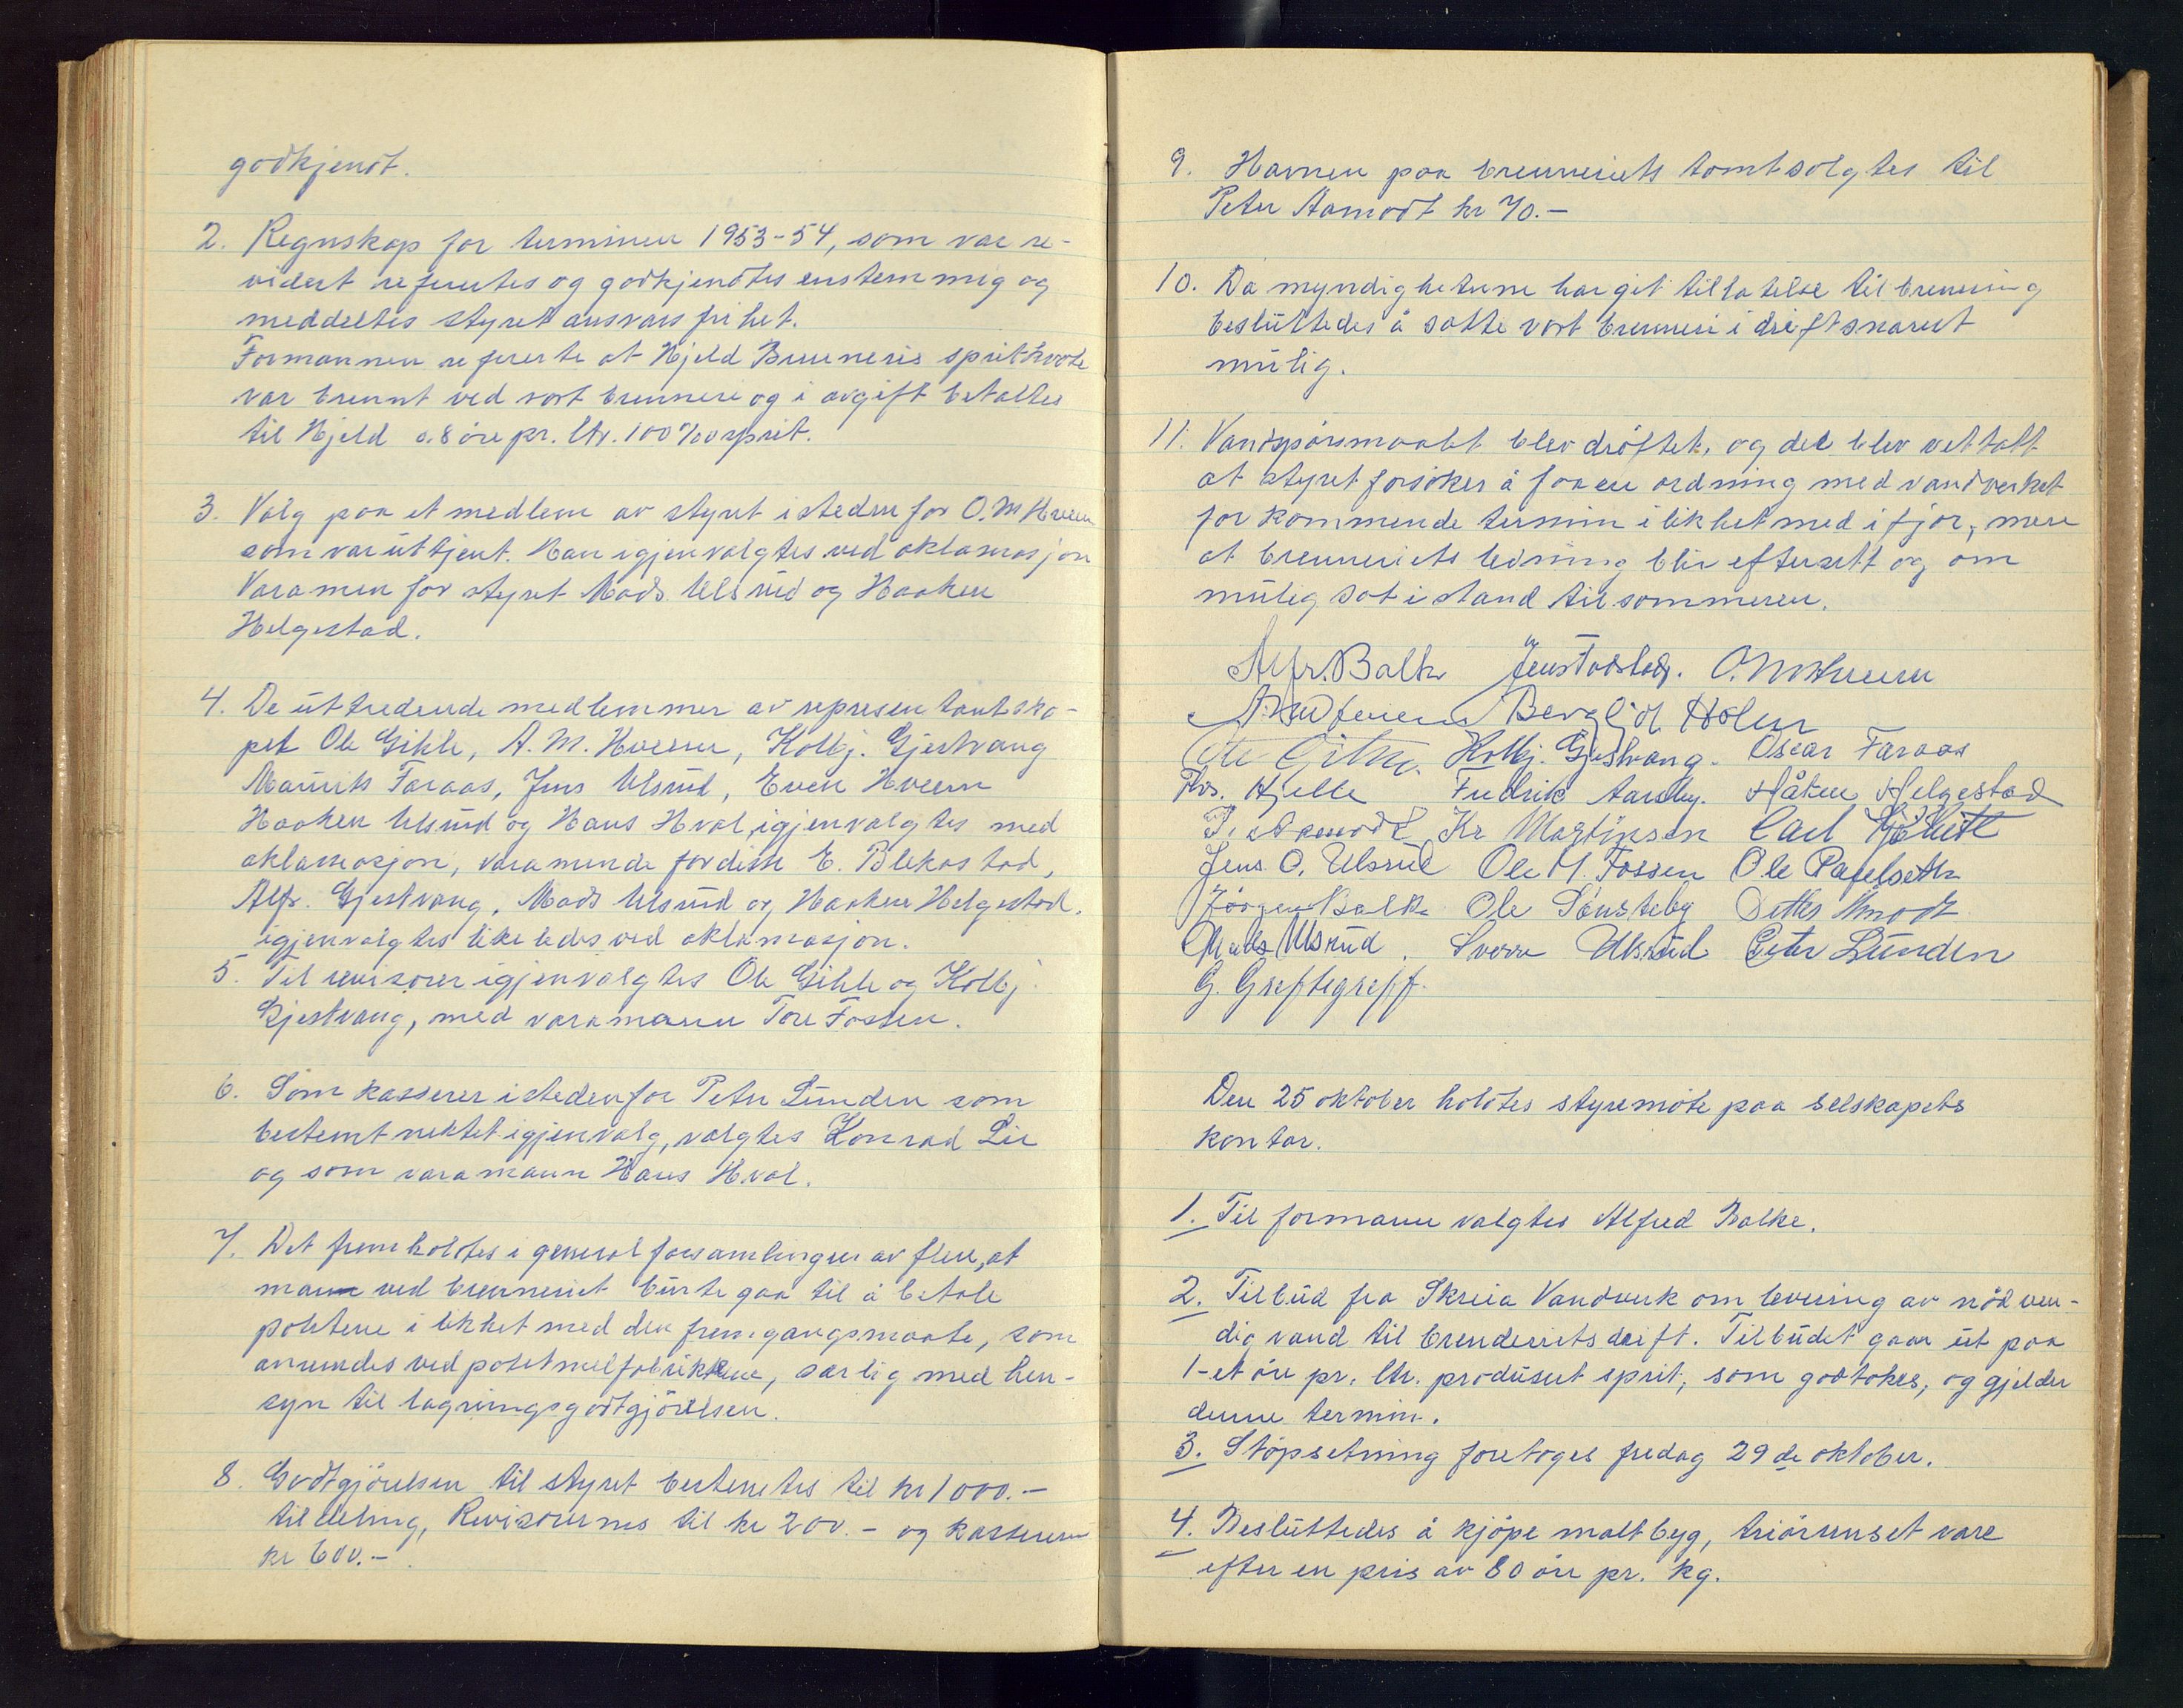 godkjendt.
2. Regnskap for terminen 1953-54, som var re-
vidert refertes og godkjendtes enstemmig og
meddeltes styret ansvarsfrihet.
Formannen refererte at Hjeld Brenneris spritkvote
var brennt ved vort brenneri og i avgift betaltes
til Hjeld 0.8 öre pr. ltr. 100% sprit.
3. Valg paa et medlem av styret isteden for O. M Hveem
som var uttjent. Han igjenvalgtes ved aklamasjon
Varamen for styret Mads Ulsrud og Haaken
Helgestad.
4. De uttredende medlemmer av representantska-
pet Ole Gihle, A. M. Hveem, Kolbj. Gjestvang
Mauritz Faraas, Jens Ulsrud, Even Hveem
Haaken Ulsrud og Hans Hval, igjenvalgtes med
aklamasjon, varamende for disse E. Blekastad,
Alfr. Gjestvang, Mads Ulsrud og Haaken Helgestad.
igjenvalgtes likeledes ved aklamasjon.
5. Til revisorer igjenvalgtes Ole Gihle og Kolbj.
Gjestvang, med varamann Tore Fossen.
6. Som kasserer istedenfor Peter Lunden som
bestemt nektet igjenvalg, valgtes Konrad Lie
og som varamann Hans Hval.
7. Det fremholdtes i generalforsamlingen av flere, at
man ved brenneriet burte gaa til å betale
potetene i likhet med den fremgangsmaate, som
anvendes ved potetmelfabrikkene, særlig med hen-
syn til lagringsgodtgjörelsen.
8. Godtgjörelsen til styret bestemtes til kr 1000.-
til deling, Revisorernes til kr 200.- og kassereren
kr 600.-
9. Havnen paa brenneriets tomt solgtes til
Peter Aamodt kr 70.-
10. Da myndighetene har git tillatelse til brenning
besluttedes å sætte vort brenneri i drift snarest
mulig.
11. Vandspörsmaalet blev dröftet, og det blev vettatt
at styret forsöker å faa en ordning med vandverket
for kommende termin i likhet med i fjor, mere
at brenneriets ledning blir eftersett og om
mulig sat i stand til sommeren.
Alfr. Balke Jens Fodstad. O. M Hveem
Bergljot Holm
Ole Gihle. Kolbj. Gjestvang. Oscar Faraas
Ths. Hjelle Fredrik Aandby. Håken Helgestad
P. Aamodt Kr Martinsen Carl
Jens O. Ulsrud Ole M. Fossen Ole Paulseth
Jörgen Balke Ole Sönsteby Ditlev Åmodt
Mads Ulsrud. Sverre Ulsrud Peter Lunden
G. Greftegreff.
Den 25 oktober holdtes styremöte paa selskapets
kontor.
1. Til formann valgtes Alfred Balke.
2. Tilbud fra Skreia Vandverk om levering av nödven-
dig vand til brenderiets drift. Tilbudet gaar ut paa
1-et öre pr. ltr. produsert sprit, som godtokes, og gjelder
denne termin.
3. Støpsetning foretoges fredag 29 de oktober.
4. Besluttedes å kjöpe maltbyg, triörrenset vare
efter en pris av 80 öre pr. kg.